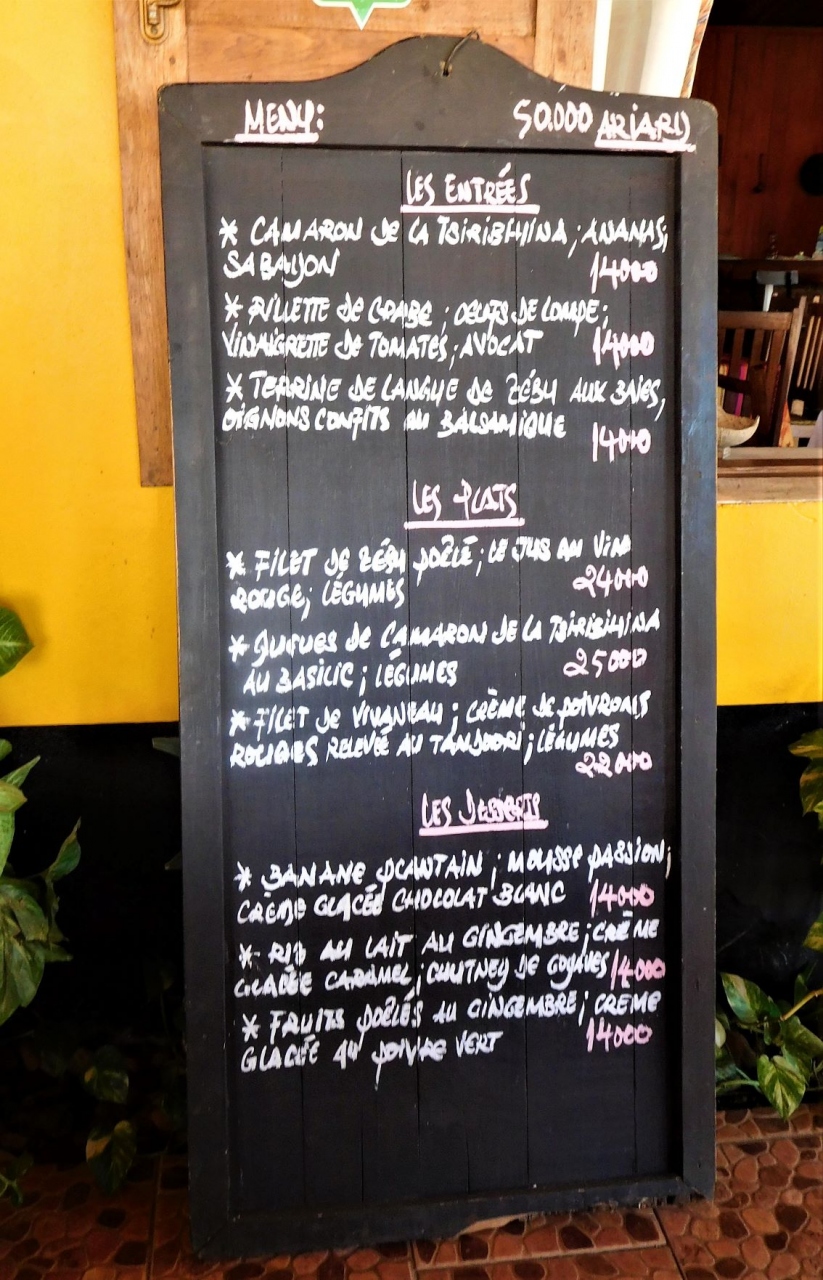 MENU: 50.000 ARIARY
LES ENTRÉES
* CAMARON DE LA TSIRIBIHINA ; ANANAS ;
SABAYON 14000
* RILLETTE DE CRABE ; OEUFS DE LOMPE ;
VINAIGRETTE DE TOMATES ; AVOCAT 14000
* TERRINE DE LANGUE DE ZÉBU AUX BAIES,
OIGNONS CONFITS AU BALSAMIQUE 14000
LES PLATS
* FILET DE ZÉBU POÊLÉ ; LE JUS AU VIN
ROUGE ; LÉGUMES 24000
* QUEUES DE CAMARON DE LA TSIRIBIHINA
AU BASILIC ; LÉGUMES 25000
* FILET DE VIVANEAU ; CRÈME DE POIVRONS
ROUGES RELEVÉ AU TANDOORI ; LÉGUMES
22000
LES DESSERTS
* BANANE PLANTAIN ; MOUSSE PASSION ;
CRÈME GLACÉE CHOCOLAT BLANC 14000
* RIZ AU LAIT AU GINGEMBRE ; CRÈME
GLACÉE CARAMEL ; CHUTNEY DE GOYAVES 14000
* FRUITS POÊLÉS AU GINGEMBRE ; CREME
GLACÉE AU POIVRE VERT 14000